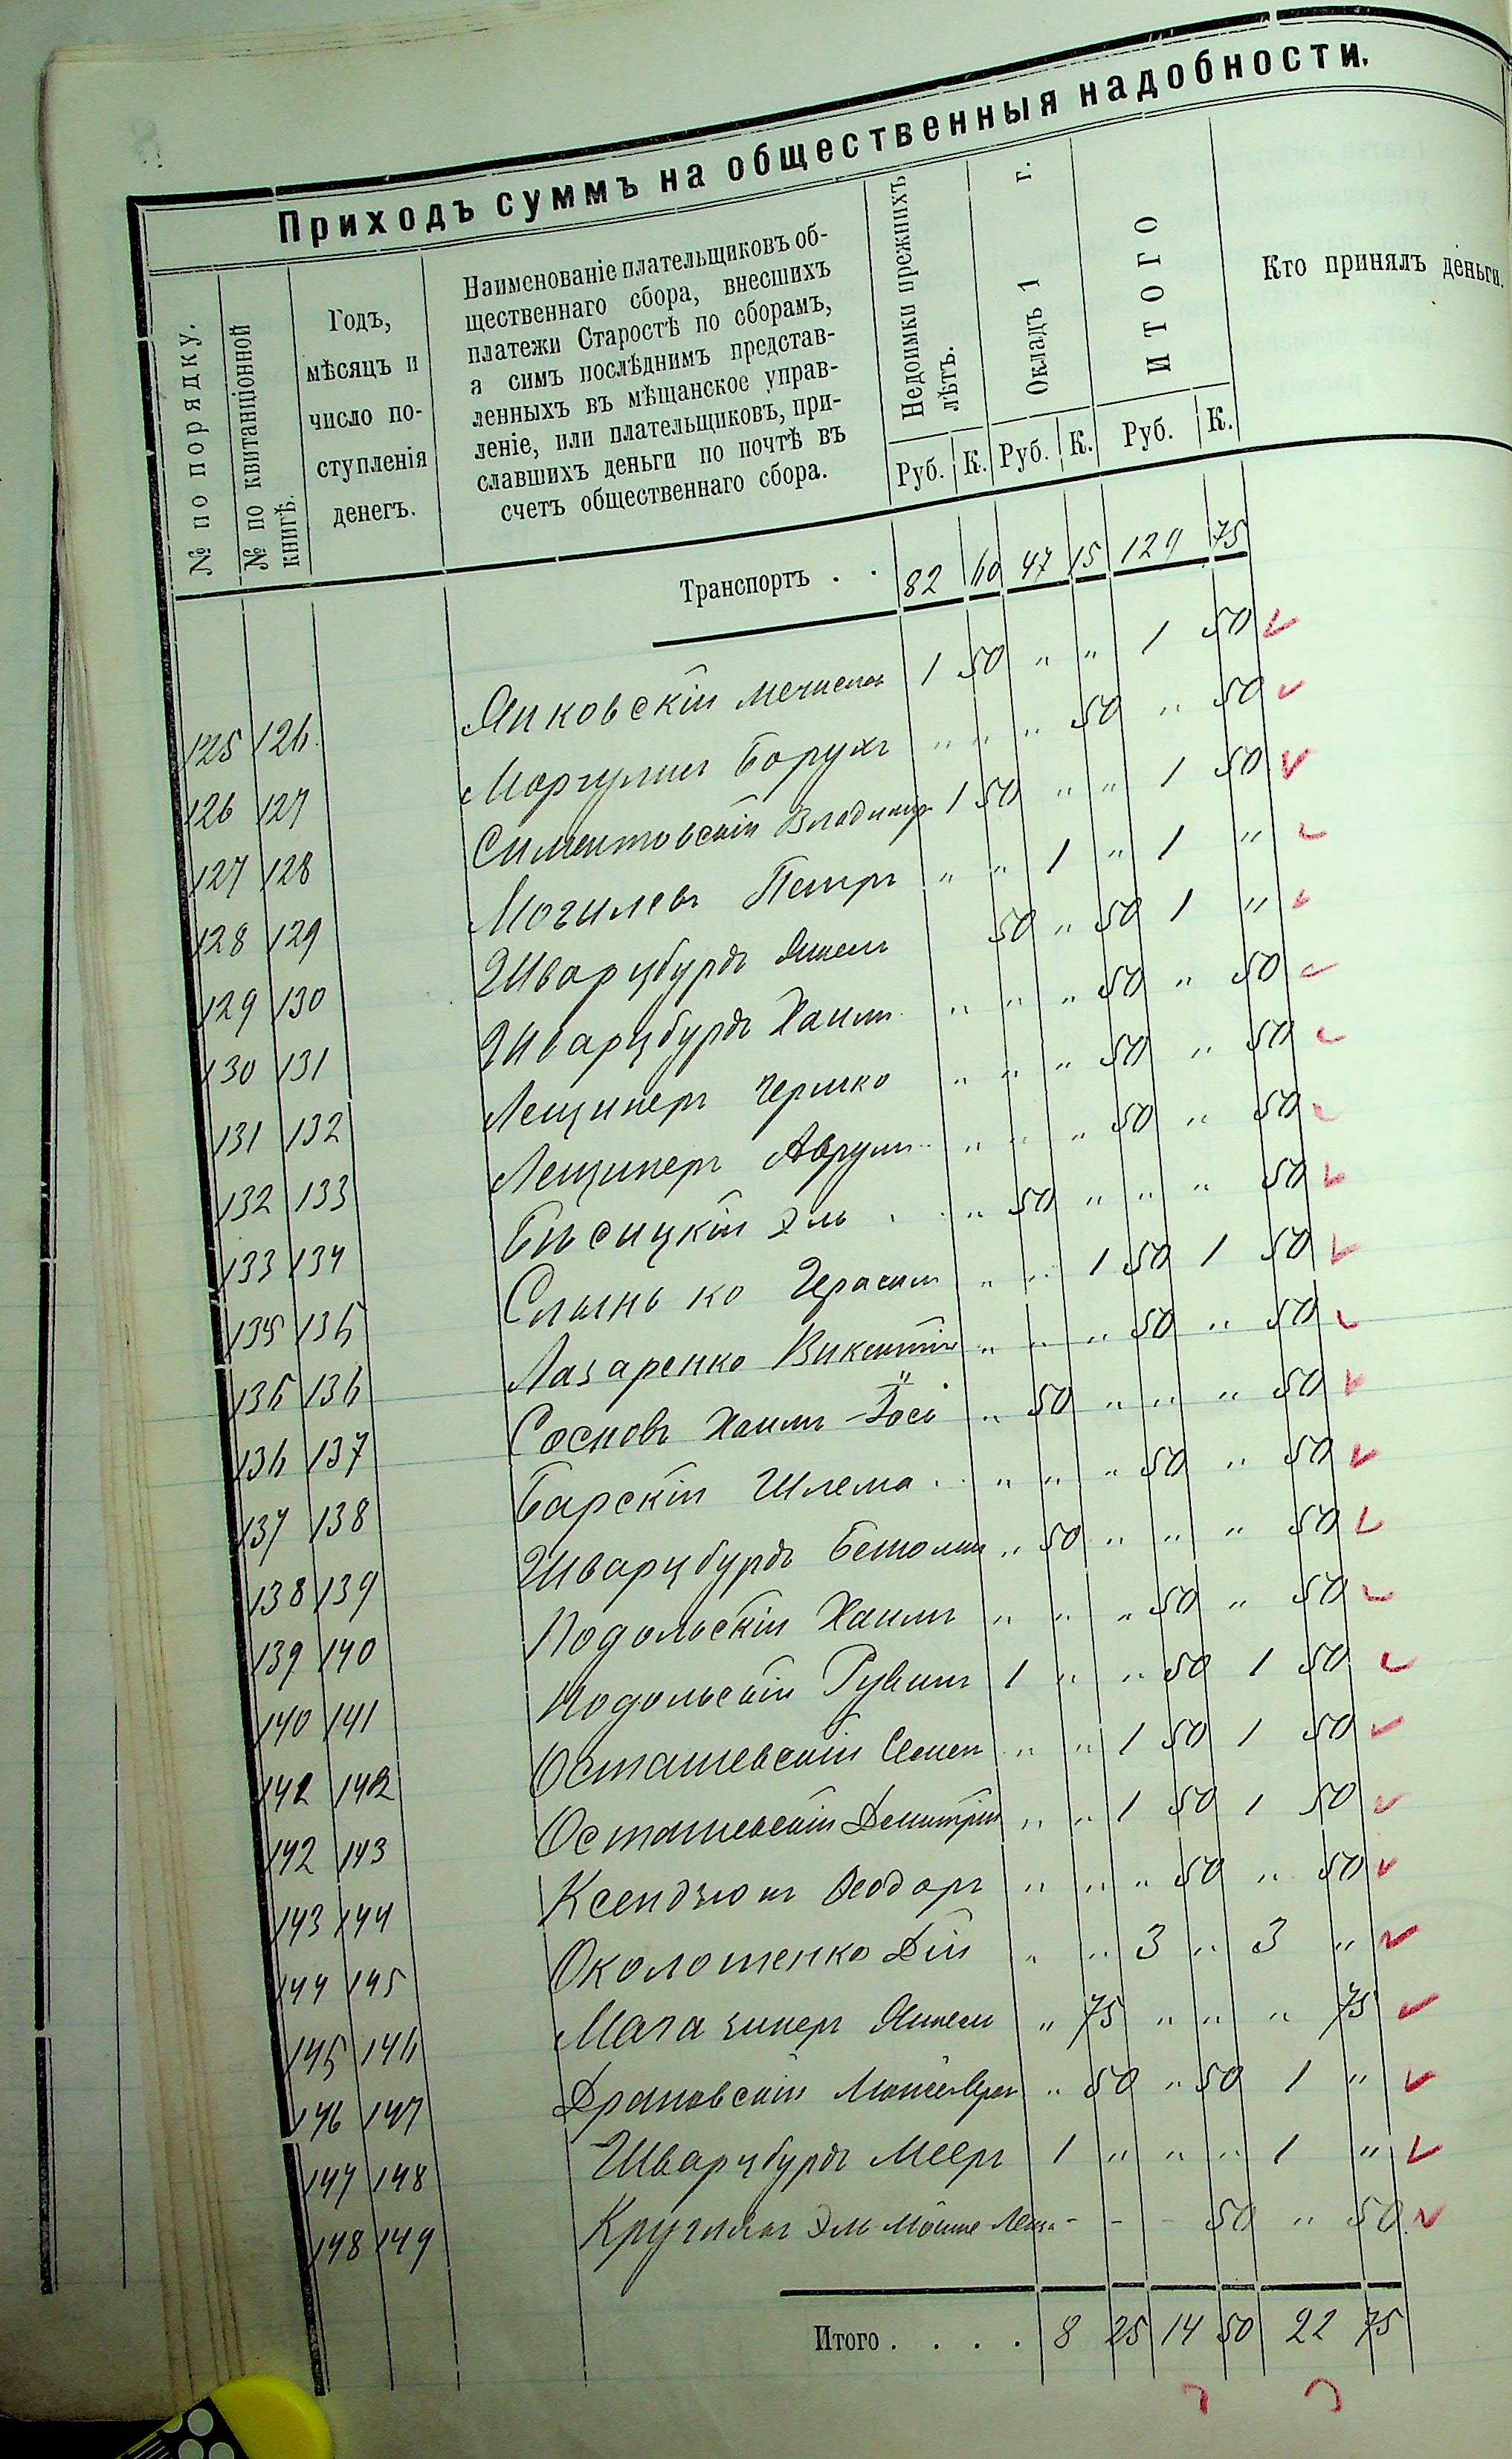 Приходъ суммъ на общественныя надобности.
№ по порядку.
№ по квитанціонной книгѣ.
Годъ,
мѣсяцъ и
число по-
ступленія
денегъ.
Наименованіе плательщиковъ об-
щественнаго сбора, внесшихъ
платежи Старостѣ по сборамъ,
а симъ послѣднимъ представ-
ленныхъ въ мѣщанское управ-
леніе, или плательщиковъ, при-
славшихъ деньги по почтѣ въ
счетъ общественнаго сбора.
Недоимки прежнихъ
лѣтъ.
Окладъ 1 г.
ИТОГО
Кто принялъ деньги.
Руб. К. Руб. К. Руб. К.
Транспортъ . . 82 60 47 15 129 75
125 126 Янковскій 1 50 " " 1 50
126 127 Моргулисъ Борухъ " " " 50 " 50
127 128 Симентовскій Владимір 1 50 " " 1 50
128 129 Могилевъ Петръ " " 1 " 1 "
129 130 Шварцбурдъ Янкель 50 " 50 1 "
130 131 Шварцбурдъ Хаимъ " " " 50 " 50
131 132 Лещинеръ Гершко " " " 50 " 50
132 133 Лещинеръ Аврумъ " " " 50 " 50
133 134 Эль " 50 " " " 50
135 135 Слынько Герасим " " 1 50 1 50
135 136 Лазаренко Викентій " " " 50 " 50
136 137 Сосновъ Хаимъ-Іось " 50 " " " 50
137 138 Барскій Шлема " " " 50 " 50
138 139 Шварцбурдъ " 50 " " " 50
139 140 Подольскій Хаимъ " " " 50 " 50
140 141 Подольскій Рувинъ 1 " " 50 1 50
142 142 Осташевскій Семен " " 1 50 1 50
142 143 Осташевскій Димитрій " " 1 50 1 50
143 144 Ксендзюкъ Ѳеодоръ " " " 50 " 50
144 145 Околотенко " " 3 " 3 "
145 146 Магазинеръ Янкель " 75 " " " 75
146 147 " 50 " 50 1 "
147 148 Шварцбурдъ Мееръ 1 " " " 1 "
148 149 Круглякъ Эль-Мойше - - - 50 " 50
Итого . . . . 8 25 14 50 22 75